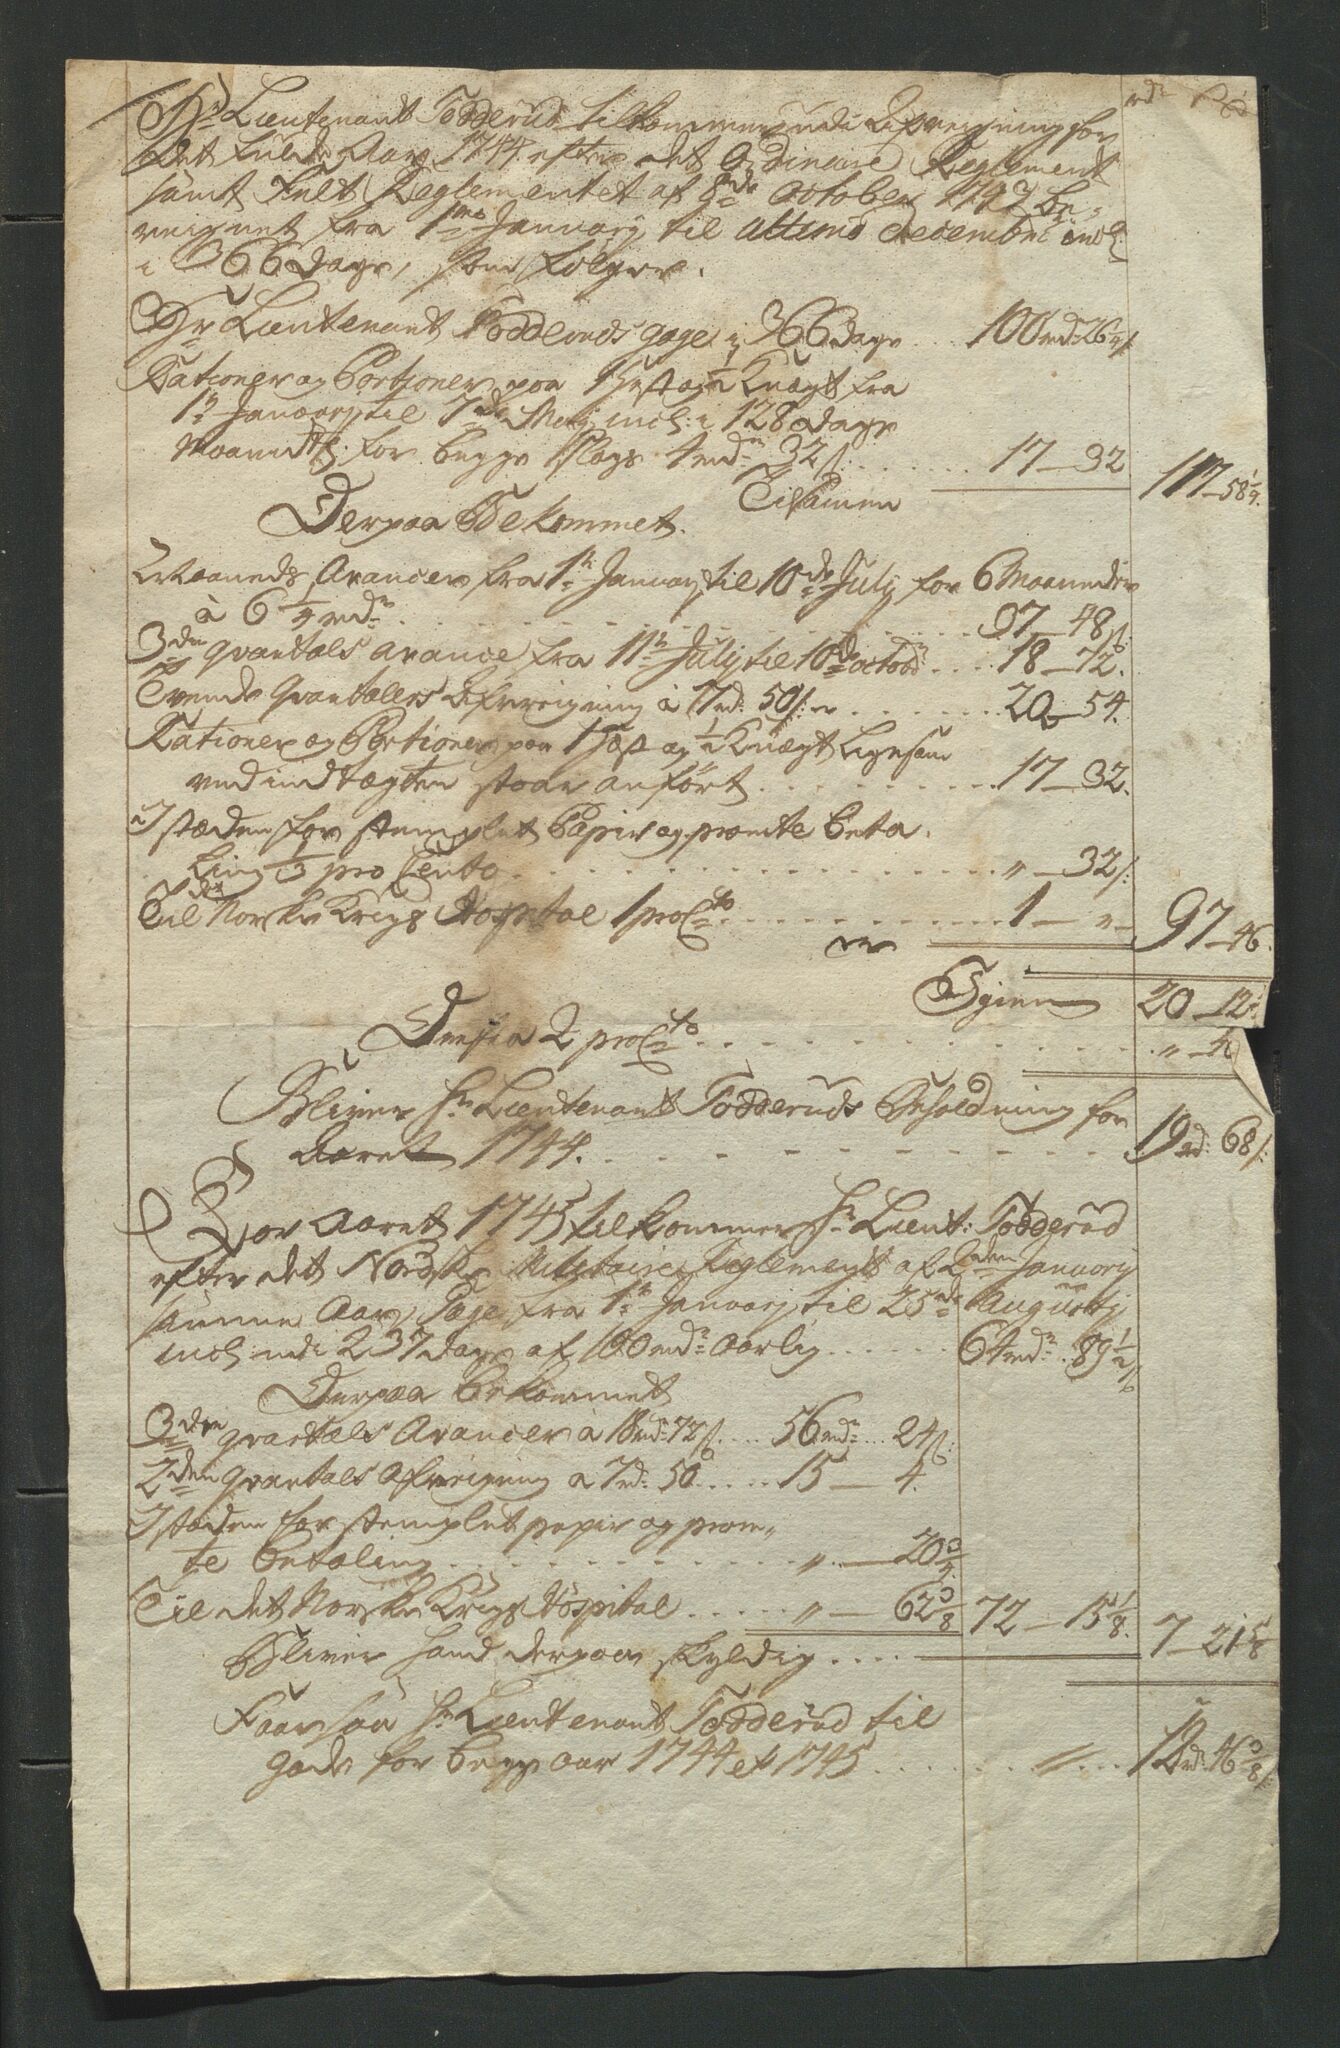 Hr Lieutenant Todderud tilkommer udi Afreigning for
det fulde Aar 1744 efter det Ordinaire Reglement
samt Felt Reglementet af 8de October 1742 be-
reignet fra 1mo January til ultimo December incl:
i 366 dage, som følger.
Hr Lieutenants Todderuds gage i 366 dage ... 100 rdr 26 1/4 s
Rationer og Portioner paa 1 Hest og 1/2 Knægt fra
1te January til 7de Maij incl: i 128 dage
Maanedtl: for begge Slags 1 rdr 32 s: ....... 17 — 32
Tilsamen 117 — 58 1/4.
Derpaa Bekommet.
Maaneds Avancer fra 1te January til 10de July for 6 Maaneder
à 6 1/4 rdr ....... 37 — 48 s:
3den qvartals avance fra 11te July til 10de octobr .... 18 — 72.
Trende Qvartalers Afreigning à 7 rd: 50 s: er ....... 20 — 54.
Rationer og Portioner paa 1 Hest og 1/2 Knægt ligesom
ved indtægten staar anført ......... 17 — 32.
I stæden for stemplet Papir og promte beta-
ling 1/3 pro Cento ....... " — 32 s:
Til det Norske Krigs Hospital 1 pro Cto ........ 1 — " —
er 97 — 46.
Igien 20 — 12.
Deraf a 2 pro Cto ....... " —
Bliver Hr Lieutenant Todderuds Beholdning for
Aaret 1744. ....... 19 rd: 68 s:
For Aaret 1745 tilkommer Hr Lieut: Todderud
efter det Nordske Militaire Reglement af 2den January
samme Aar, Gage fra 1te January til 25de Augusty
incl: udi 237 dage af 100 rdr aarlig ...... 64 rdr. 89 1/2 s
Derpaa bekommet
3den qvartals Avancer à 18 rdr 72 s .... 56 rdr ... 24 s:
2den qvartals Afreigning a 7 rd: 50 ..... 15 — 4.
I stæden for stemplet papir og prom-
te betaling .......... " — 20 3/4.
Til det Norske Krigs Hospital ..... " — 62 3/8 72 — 15 1/8.
Bliver hand derpaa skyldig .... 7 — 21 5/8
Faar saa Hr Lieutenant Todderud til
gode for begge aar 1744 et 1745 ....... " ... 12 rd: 46 3/8 s: